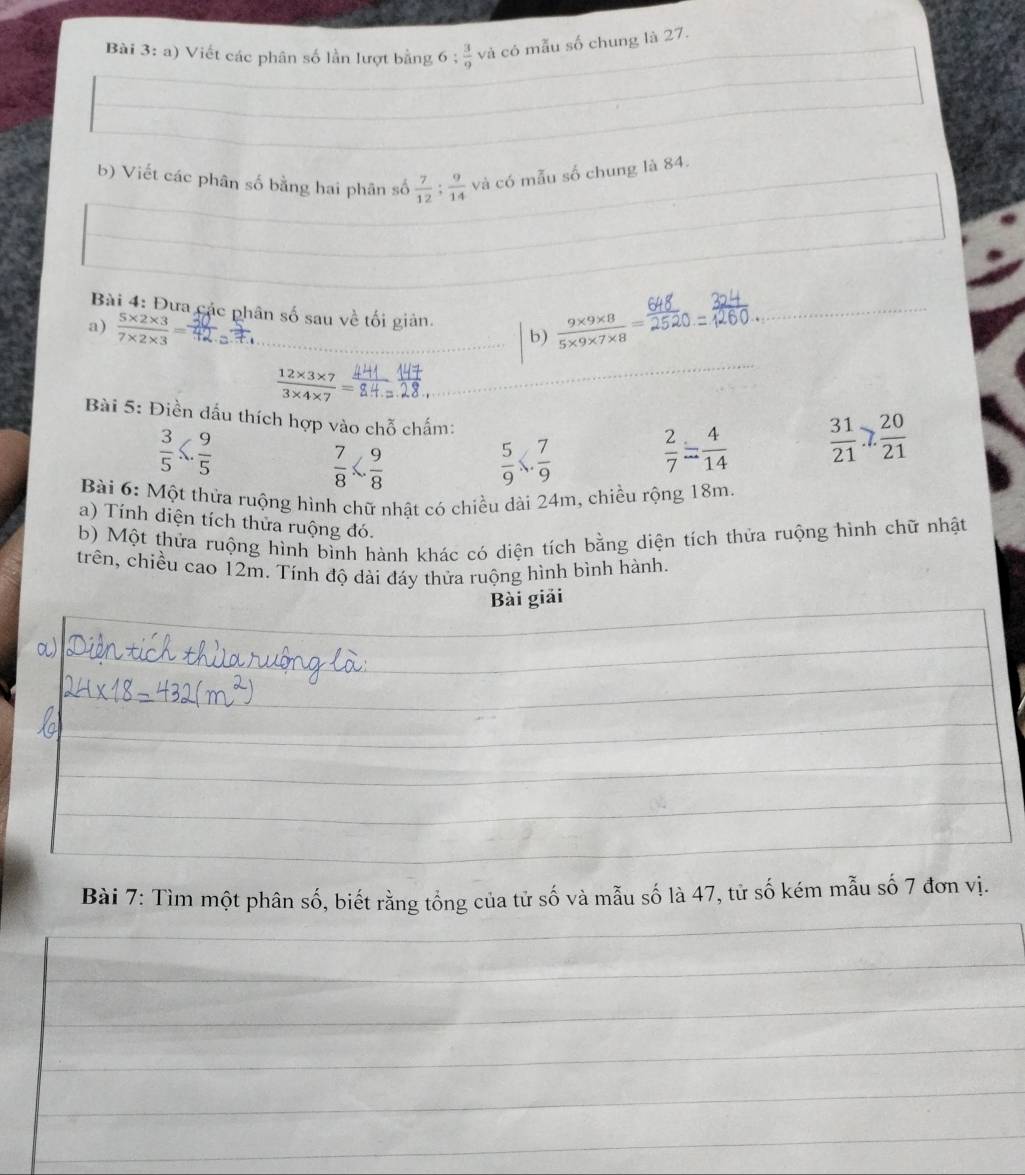 Bài 3: a) Viết các phân số lần lượt bằng 6 ; 3/9 và có mẫu số chung là 27.
b) Viết các phân số bằng hai phân số 7/12 ; 9/14 và có mẫu số chung là 84.
Bài 4: Đưa các phân số sau về tối giản.
a) 5×2×3/7×2×3 = 30/42 = 5/7.
b) 9×9×8/5×9×7×8 = 648/2520 = 324/1260.
12×3×7/3×4×7 = 441/84 = 147/28.
Bài 5: Điền dấu thích hợp vào chỗ chấm:
3/5 < 9/5 7/8 < 9/8 5/9 < 7/9 2/7 = 4/14 31/21 > 20/21
Bài 6: Một thửa ruộng hình chữ nhật có chiều dài 24m, chiều rộng 18m.
a) Tính diện tích thửa ruộng đó.
b) Một thửa ruộng hình bình hành khác có diện tích bằng diện tích thửa ruộng hình chữ nhật
trên, chiều cao 12m. Tính độ dài đáy thửa ruộng hình bình hành.
Bài giải
a) Diện tích thửa ruộng là:
24×18=432(m²)
b)
Bài 7: Tìm một phân số, biết rằng tổng của tử số và mẫu số là 47, tử số kém mẫu số 7 đơn vị.